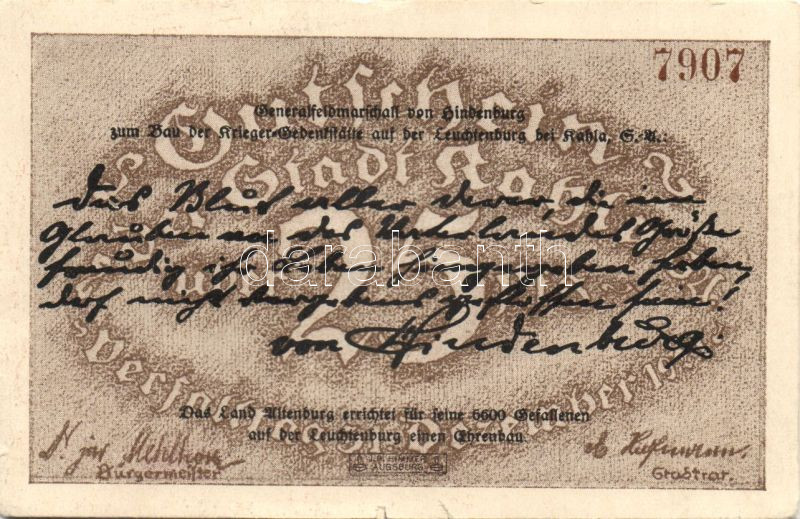 7907
Gutschein
Generalfeldmarschall von Hindenburg
zum Bau der Krieger-Gedenkstätte auf der Leuchtenburg bei Kahla, S.-A.:
Stadt Kahla
Das Blut aller derer, die im
Glauben an des Vaterlandes Größe
freudig ihr Leben hingegeben haben,
darf nicht vergebens geflossen sein!
25
von Hindenburg.
darabanth
Das Land Altenburg errichtet für seine 6600 Gefallenen
auf der Leuchtenburg einen Ehrenbau.
Dr. jur.
Bürgermeister
Stadtrat.
AUGSBURG